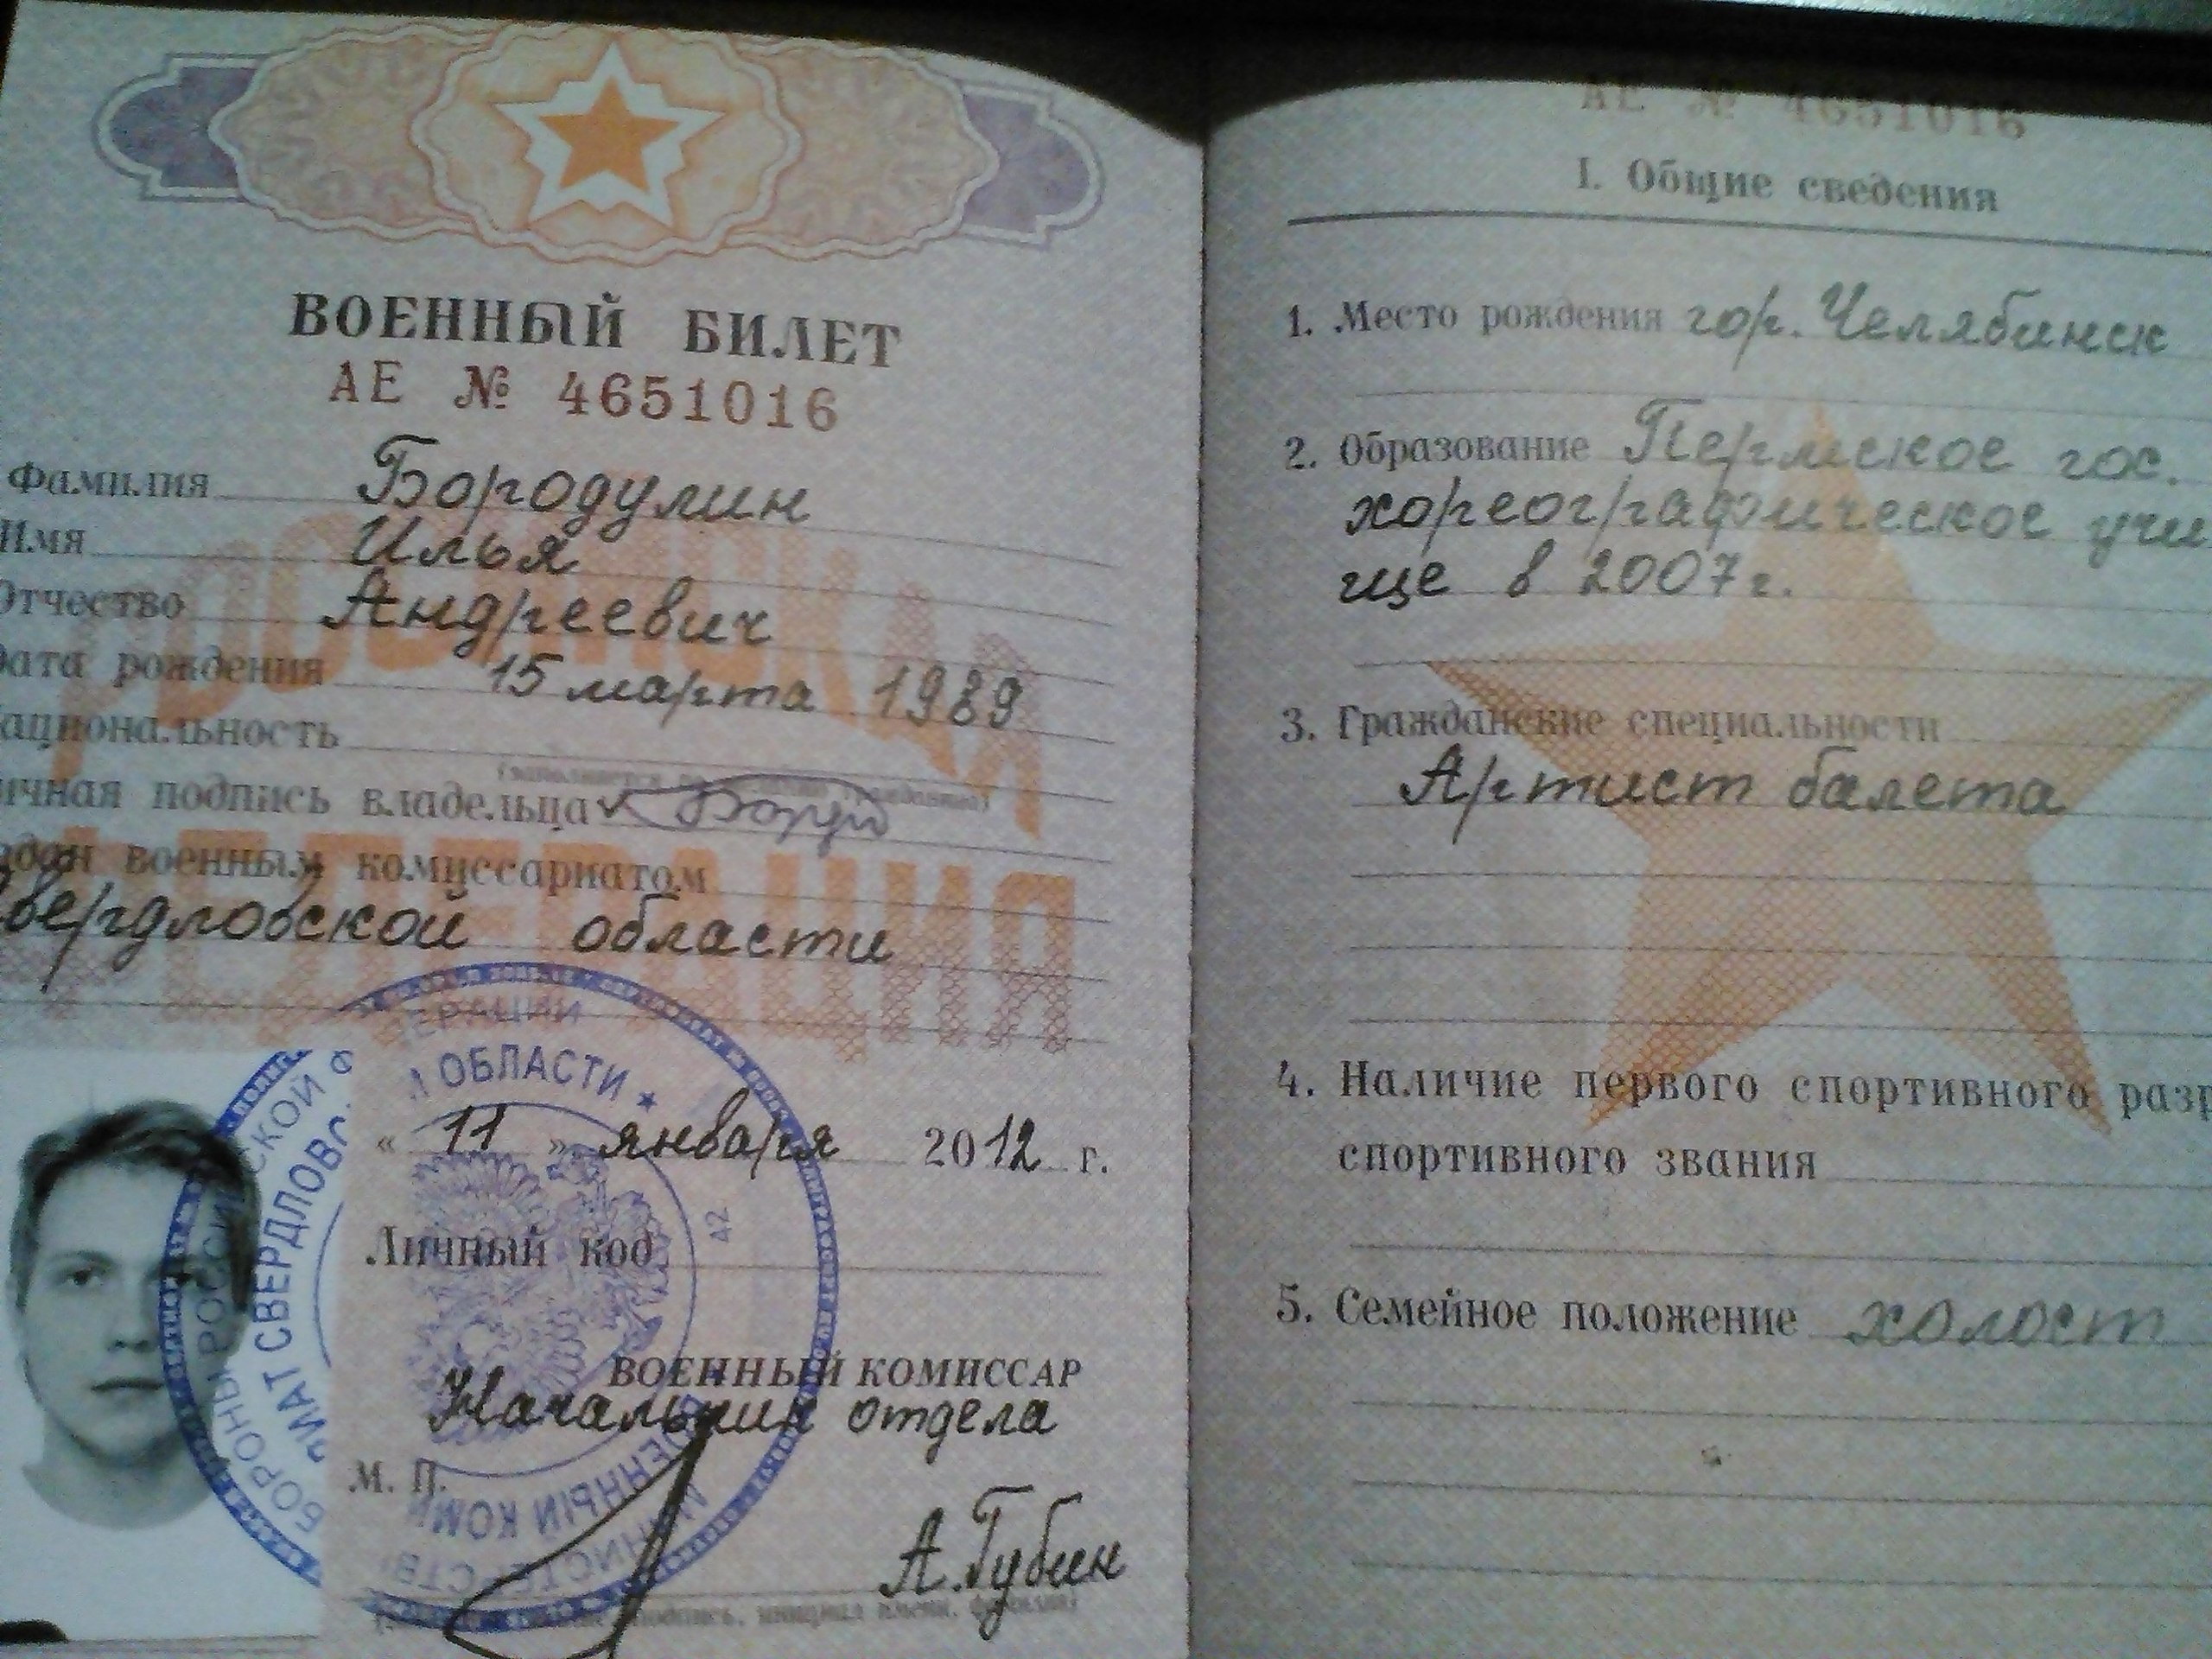 ВОЕННЫЙ БИЛЕТ
АЕ № 4651016
Фамилия Бородулин
Имя Илья
Отчество Андреевич
дата рождения 15 марта 1989
ациональность
(заполняется по желанию гражданина)
ичная подпись владельца
военным комиссариатом
вердловской области
« 11 » января 2012 г.
Личный код
ВОЕННЫЙ КОМИССАР
Начальник отдела
М. П.
А. Губин
подпись, инициал имени, фамилия)
ОБЛАСТИ ★
СВЕРДЛОВС
42
РОССИЙСКАЯ
ФЕДЕРАЦИЯ
АЕ № 4651016
I. Общие сведения
1. Место рождения гор. Челябинск
2. Образование Пермское гос.
хореографическое учи
ще в 2007 г.
3. Гражданские специальности
Артист балета
4. Наличие первого спортивного разр
спортивного звания
5. Семейное положение холост